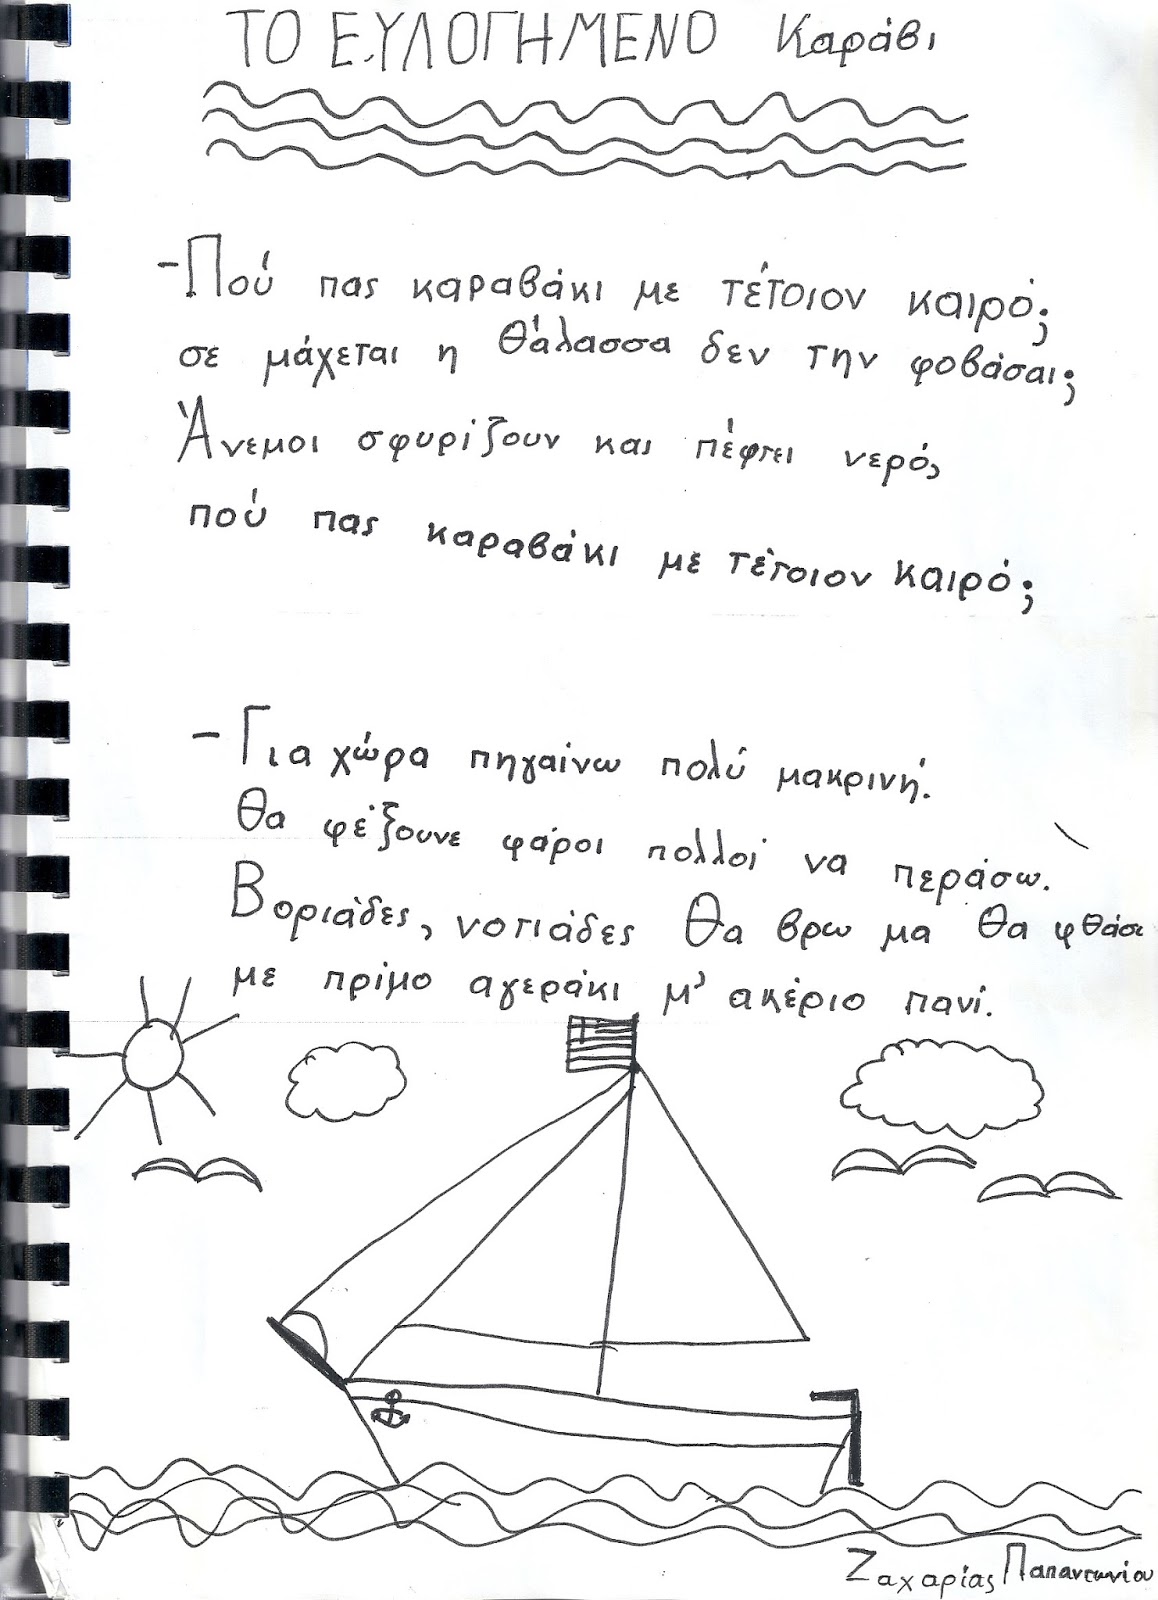 ΤΟ ΕΥΛΟΓΗΜΕΝΟ Καράβι
-Πού πας καραβάκι με τέτοιον καιρό;
σε μάχεται η θάλασσα δεν την φοβάσαι;
Άνεμοι σφυρίζουν και πέφτει νερό,
πού πας καραβάκι με τέτοιον καιρό;
- Για χώρα πηγαίνω πολύ μακρινή.
Θα φέξουνε φάροι πολλοί να περάσω.
Βοριάδες, νοτιάδες θα βρω μα θα φθάσω
με πρίμο αγεράκι μ' ακέριο πανί.
Ζαχαρίας Παπαντωνίου